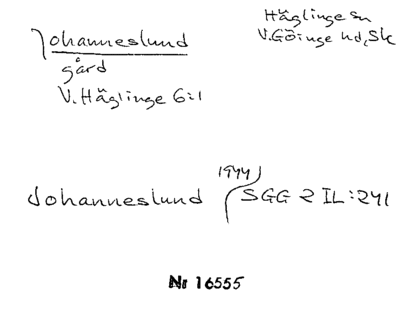 Johanneslund
Häglinge sn
V. Göinge hd, Sk
gård
V. Häglinge 6:1
1944
Johanneslund SGG 2 IL:241
Nr 16555